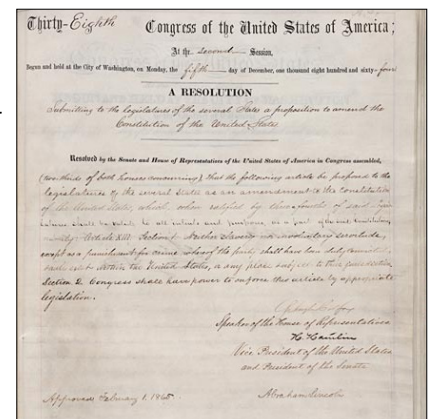 Thirty-Eighth Congress of the United States of America;
At the second Session,
Begun and held at the City of Washington, on Monday, the fifth day of December, one thousand eight hundred and sixty-four
A RESOLUTION
Submitting to the legislatures of the several States a proposition to amend the
Constitution of the United States
Resolved by the Senate and House of Representatives of the United States of America in Congress assembled,
(two-thirds of both houses concurring) that the following article be proposed to the
legislatures of the several States as an amendment to the Constitution
of the United States, which when ratified by three-fourths of said
shall be valid, to all intents and purposes, as a part of the said Constitution
namely: Article XIII. Section 1. Neither slavery nor involuntary servitude,
except as a punishment for crime whereof the party shall have been duly convicted,
shall exist within the United States, or any place subject to their jurisdiction.
Section 2. Congress shall have power to enforce this article by appropriate
legislation.
Speaker of the House of Representatives
H. Hamlin
Vice President of the United States
and President of the Senate
Approved February 1. 1865.
Abraham Lincoln